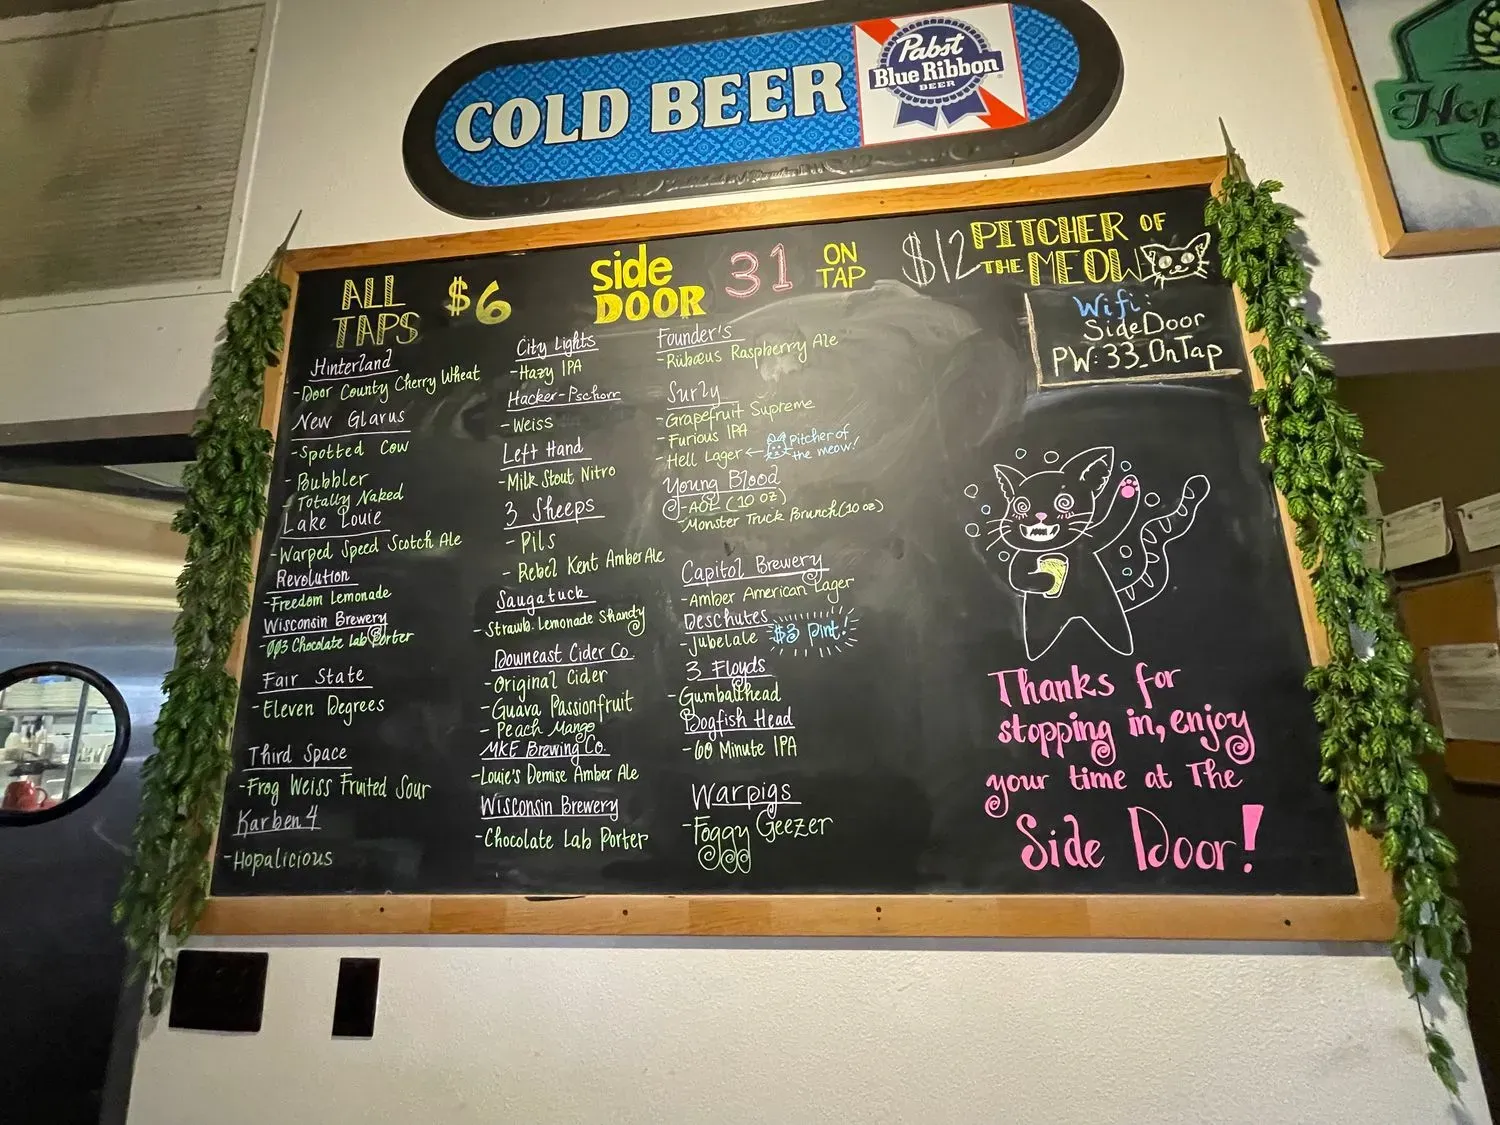 COLD BEER
Pabst
Blue Ribbon
BEER
ALL
TAPS
$6
Side
DOOR
31
ON
TAP
$12
PITCHER OF
THE MEOW
Wifi:
SideDoor
PW: 33_OnTap
Hinterland
-Door County Cherry Wheat
New Glarus
-Spotted Cow
-Bubbler
-Totally Naked
Lake Louie
-Warped Speed Scotch Ale
Revolution
-Freedom Lemonade
Wisconsin Brewery
-003 Chocolate Lab Porter
Fair State
-Eleven Degrees
Third Space
-Frog Weiss Fruited Sour
Karben4
-Hopalicious
City Lights
-Hazy IPA
Hacker-Pschorr
-Weiss
Left Hand
-Milk Stout Nitro
3 Sheeps
-Pils
-Rebel Kent Amber Ale
Saugatuck
-Strawb. Lemonade Shandy
Downeast Cider Co.
-Original Cider
-Guava Passionfruit
-Peach Mango
MKE Brewing Co.
-Louie's Demise Amber Ale
Wisconsin Brewery
-Chocolate Lab Porter
Founder's
-Rübæus Raspberry Ale
Surly
-Grapefruit Supreme
-Furious IPA
-Hell Lager ← pitcher of
the meow!
Young Blood
-AOE (10 oz)
-Monster Truck Brunch (10 oz)
Capitol Brewery
-Amber American Lager
Deschutes
-Jubelale $3 pint!
3 Floyds
-Gumballhead
Dogfish Head
-60 Minute IPA
Warpigs
-Foggy Geezer
Thanks for
stopping in, enjoy
your time at The
Side Door!